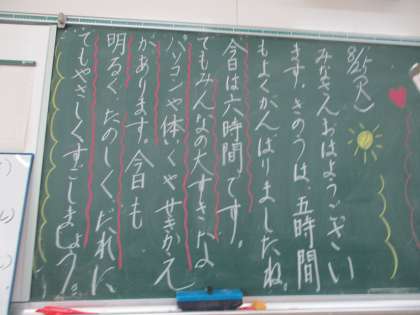 8/25(火)
みなさんおはようござい
ます。きのうは、五時間
もよくがんばりましたね。
今日は六時間です。
てもみんなの大すきなな
パソコンや体いくやせきがえ
があります。今日も
明るく、たのしく、だれに
でもやさしくすごしましょう。